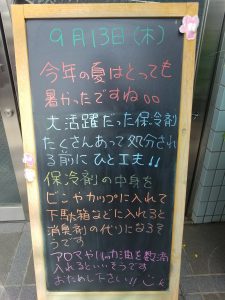 9月13日(木)
今年の夏はとっても
暑かったですね。。
大活躍だった保冷剤
たくさんあって処分され
る前にひと工夫!!
保冷剤の中身を
ビンやカップに入れて
下駄箱などに入れると
消臭剤の代りになるそ
うです
アロマやハッカ油を数滴
入れるといいそうです
おためし下さい!!